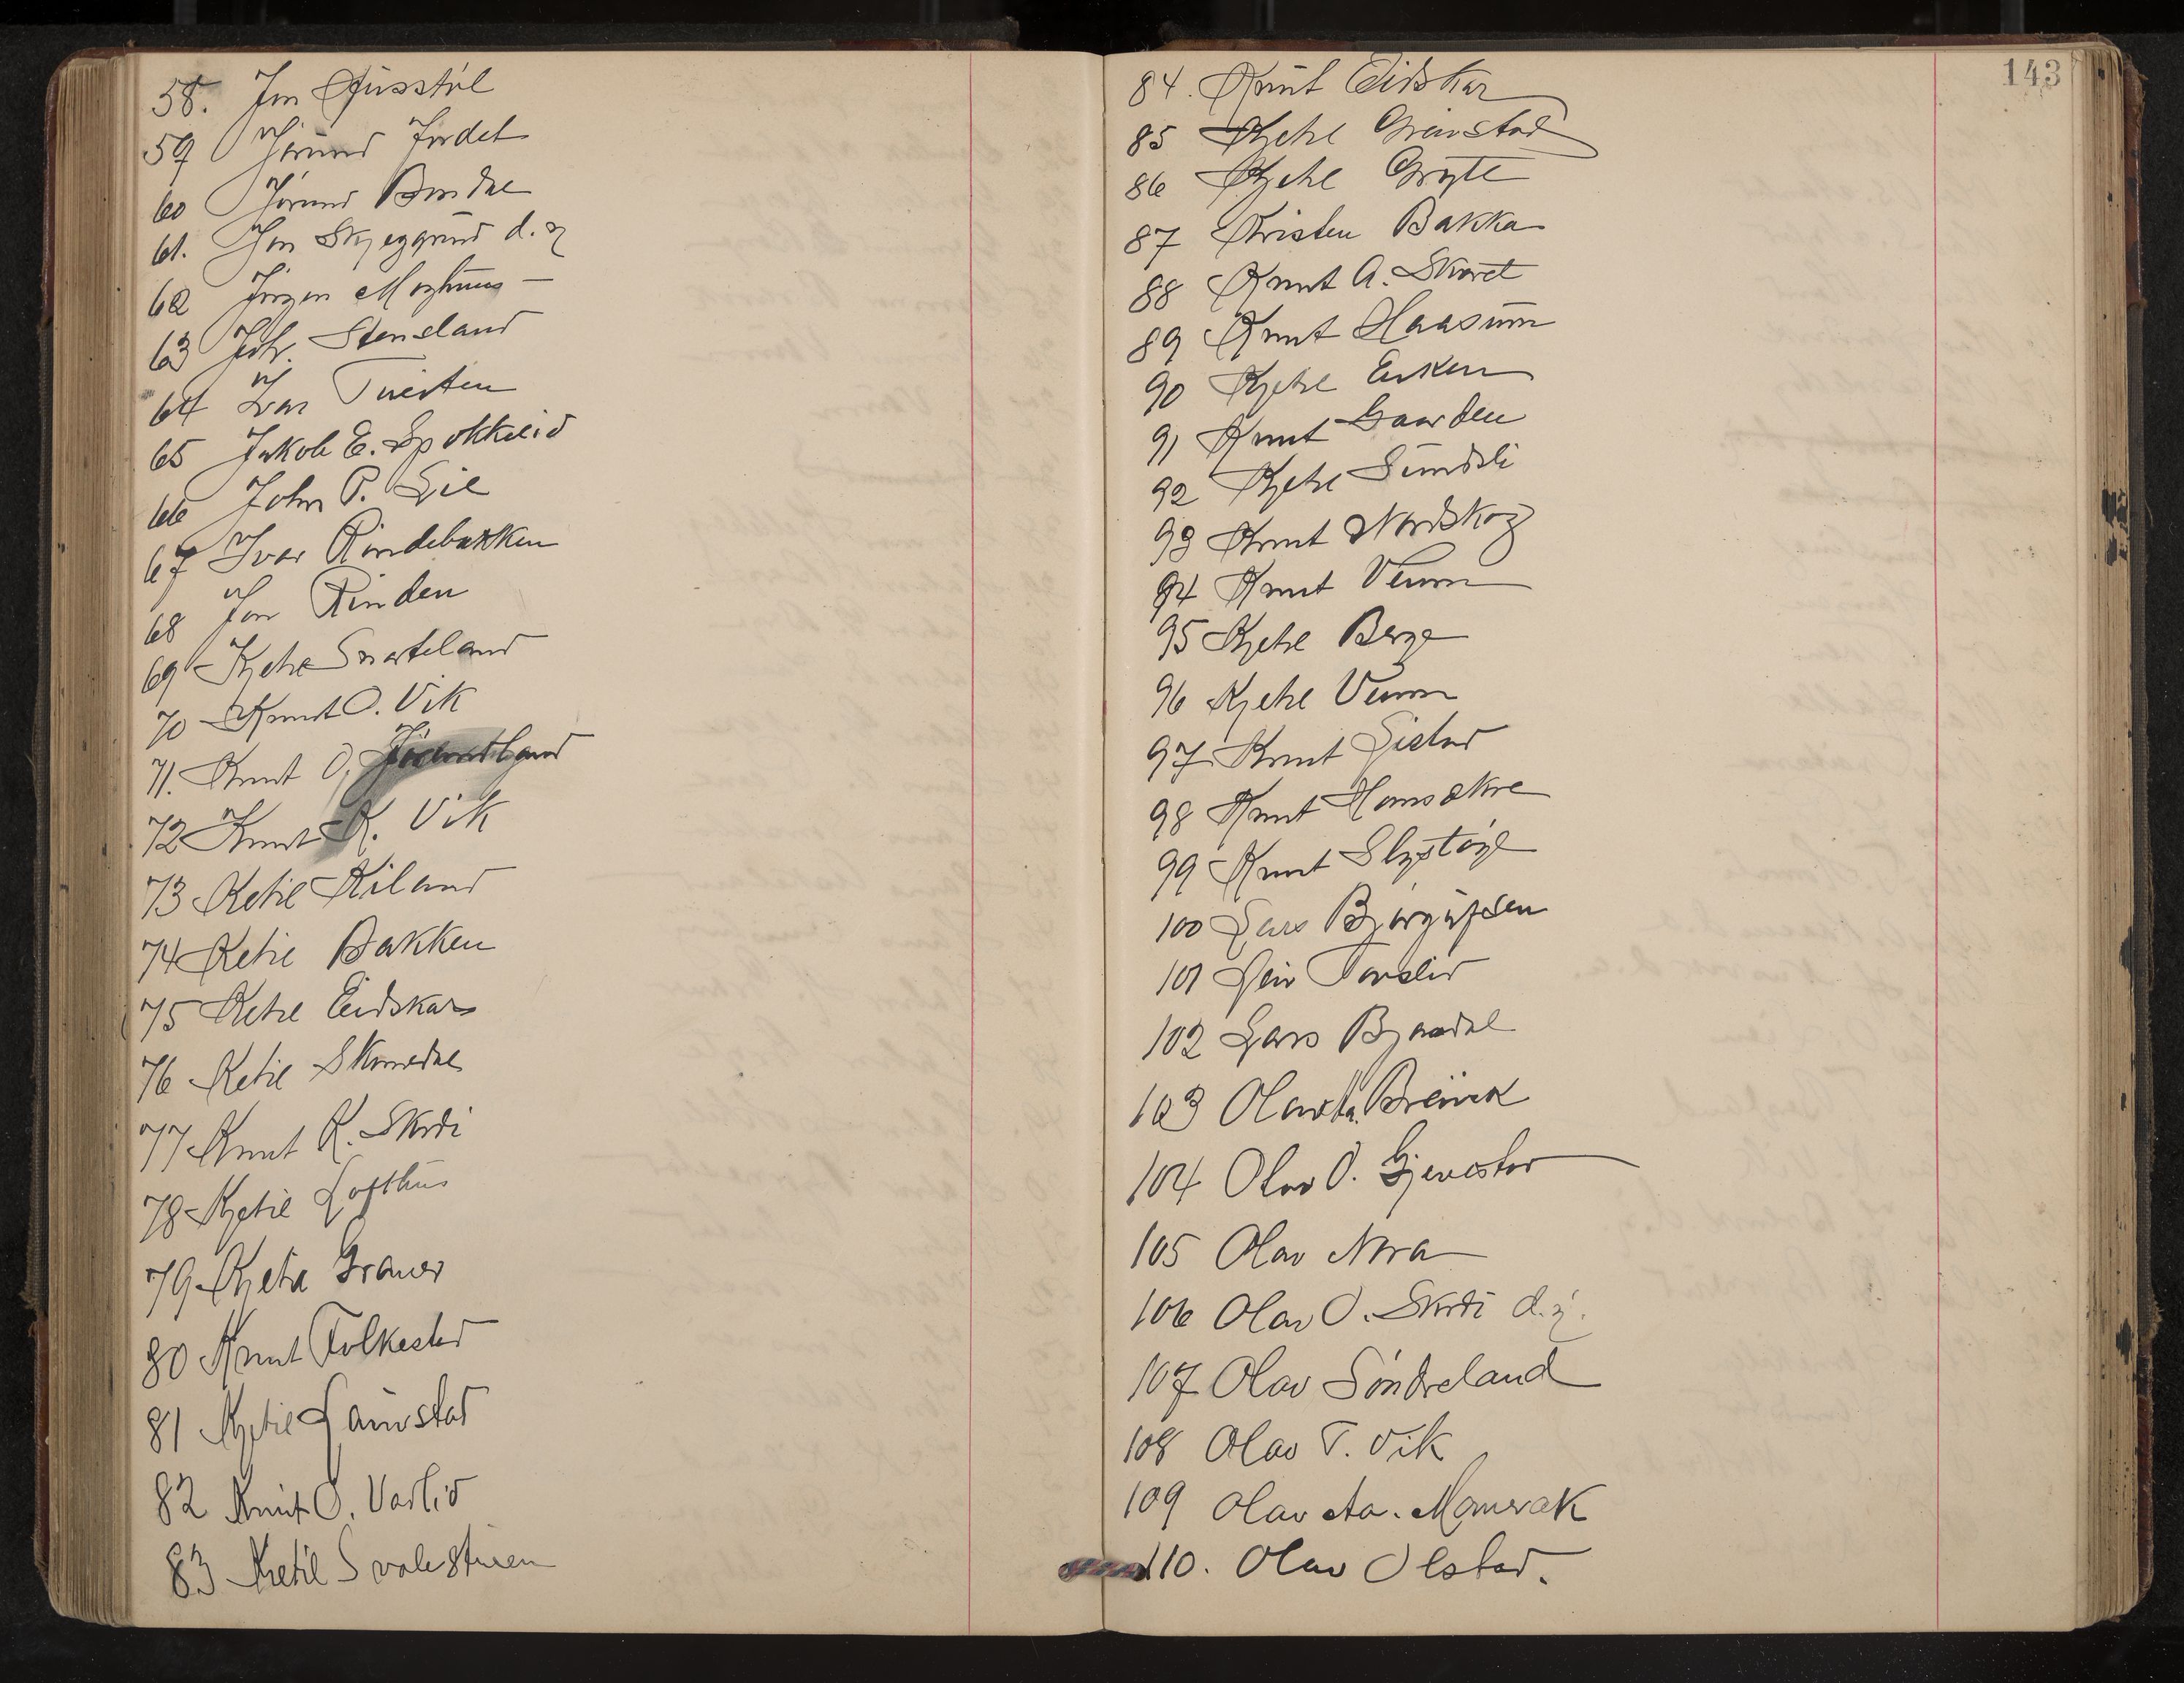 58. Jon Husstøl
59 Jörund Jordet
60 Jörund Bondal
61. Jon Skjeggrund d. y
62 Jörgen Moghuus —
63 Joh. Stensland
64 Ivar Tveiten
65 Jakob E. Spokkelid
66 John P. Lie
67 Ivar Rindebakken
68 Jon Rinden
69 Kjetil Svarteland
70 Knut O. Vik
71. Knut O. Jørundland
72 Knut K. Vik
73 Ketil Kiland
74 Ketil Bakken
75 Ketil Eidskar
76 Ketil Skomedal
77 Knut K. Skrdi
78 Kjetil Lofthus
79 Kjetil Graver
80 Knut Folkestad
81 Kjetil Launstad
82 Knut O. Varlid
83 Ketil Svalestuen
143
84. Knut Eidskar
85 Kjetil Grivstad
86 Kjetil Gryte
87 Kristen Bakka
88 Knut A. Skoret
89 Knut Haasum
90 Kjetil Enken
91 Knut Gaarden
92 Kjetil Sundsli
93 Knut Nordskog
94 Knut Veum
95 Kjetil Berge
96 Kjetil Veum
97 Knut Gistad
98 Knut Homsakre
99 Knut Slystøyl
100 Lars Bjørgufsen
101 Leiv Torslid
102 Lars Bjaadal
103 Olav Aa. Breivik
104 Olav O. Gjevestad
105 Olav Nora
106 Olav O. Skrdi d.y.
107 Olav Söndreland
108 Olav T. Vik
109 Olav Aa. Momrak
110. Olav Olstad.